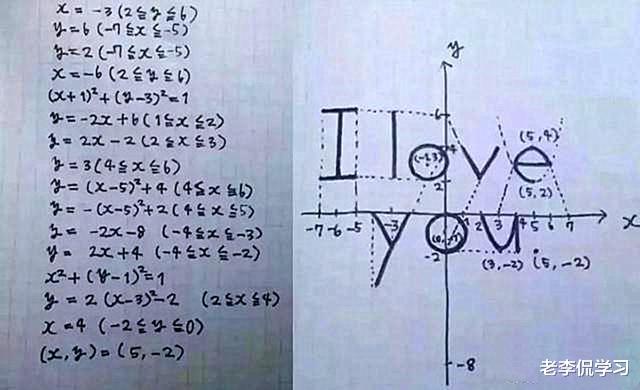 x = -3 (2≦y≦6)
y = 6 (-7≦x≦-5)
y = 2 (-7≦x≦-5)
x = -6 (2≦y≦6)
(x+1)²+(y-3)²=1
y = -2x+6 (1≦x≦2)
y = 2x-2 (2≦x≦3)
y = 3 (4≦x≦6)
y = (x-5)²+4 (4≦x≦6)
y = -(x-5)²+2 (4≦x≦5)
y = -2x-8 (-4≦x≦-3)
y = 2x+4 (-4≦x≦-2)
x²+(y-1)²=1
y = 2(x-3)²-2 (2≦x≦4)
x=4 (-2≦y≦0)
(x,y)=(5,-2)
y
6
I love
(5,4)
4
(-1,3)
2
(5,2)
-7 -6 -5 -3 2 3 4 5 6 7 x
you.
-2
(3,-2) (5,-2)
-8
老李侃学习